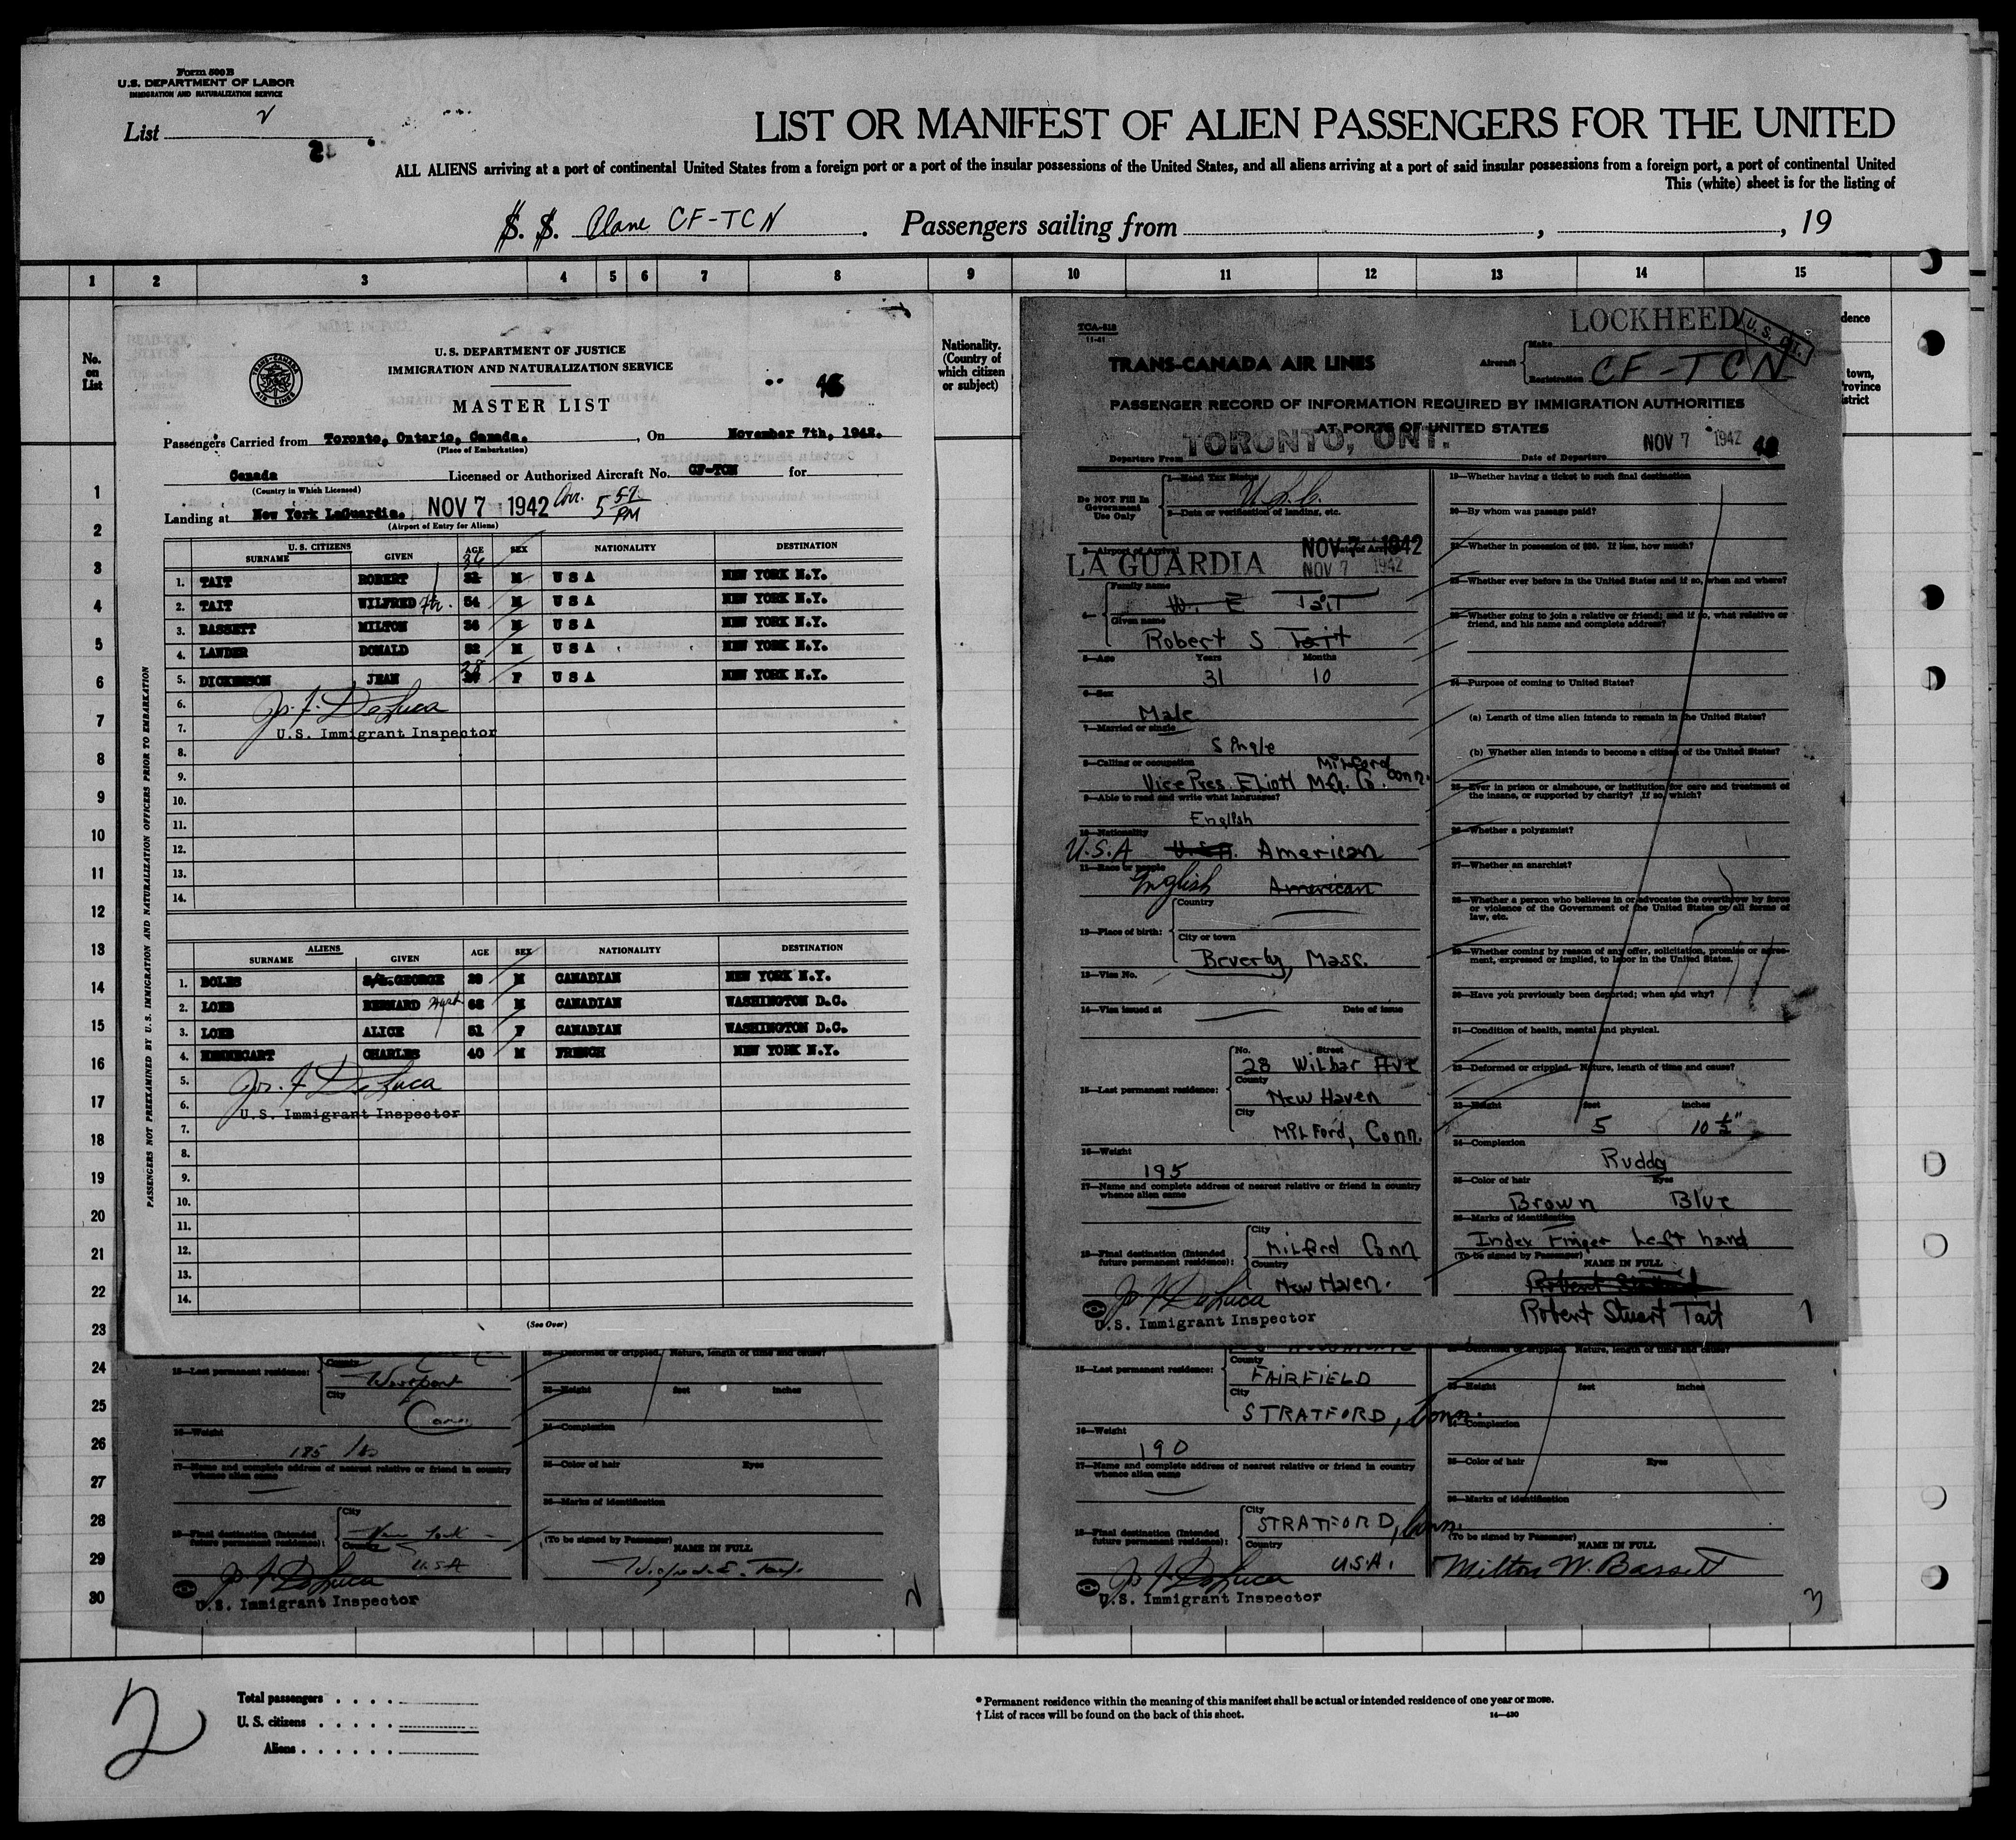 Form 500 B
U.S. DEPARTMENT OF LABOR
IMMIGRATION AND NATURALIZATION SERVICE
List 2
2
LIST OR MANIFEST OF ALIEN PASSENGERS FOR THE UNITED
ALL ALIENS arriving at a port of continental United States from a foreign port or a port of the insular possessions of the United States, and all aliens arriving at a port of said insular possessions from a foreign port, a port of continental United
This (white) sheet is for the listing of
S. S. Plane CF-TCN . Passengers sailing from , , 19
1 2 3 4 5 6 7 8 9 10 11 12 13 14 15
No. on List
Nationality. (Country of which citizen or subject)
dence
town,
rovince
strict
1
2
3
4
5
6
7
8
9
10
11
12
13
14
15
16
17
18
19
20
21
22
23
24
25
26
27
28
29
30
TRANS-CANADA AIR LINES
U. S. DEPARTMENT OF JUSTICE
IMMIGRATION AND NATURALIZATION SERVICE
MASTER LIST
Passengers Carried from Toronto, Ontario, Canada. , On November 7th, 1942.
(Place of Embarkation)
Canada Licensed or Authorized Aircraft No. CF-TCN for
(Country in Which Licensed)
Landing at New York LaGuardia. NOV 7 1942 Arr. 5 57 PM
(Airport of Entry for Aliens)
PASSENGERS NOT PREEXAMINED BY U.S. IMMIGRATION AND NATURALIZATION OFFICERS PRIOR TO EMBARKATION
U. S. CITIZENS
SURNAME GIVEN AGE SEX NATIONALITY DESTINATION
1. TAIT ROBERT 31 M U S A NEW YORK N.Y.
2. TAIT WILFRED 54 M U S A NEW YORK N.Y.
3. BASSETT MILTON 36 M U S A NEW YORK N.Y.
4. LANDER DONALD 52 M U S A NEW YORK N.Y.
5. DICKENSON JEAN 28 F U S A NEW YORK N.Y.
6.
Jos. F. DeLuca
7. U.S. Immigrant Inspector
8.
9.
10.
11.
12.
13.
14.
ALIENS
SURNAME GIVEN AGE SEX NATIONALITY DESTINATION
1. BOLES S/L.GEORGE 29 M CANADIAN NEW YORK N.Y.
2. LOEB BERNARD 62 M CANADIAN WASHINGTON D.C.
3. LOEB ALICE 51 F CANADIAN WASHINGTON D.C.
4. CHARLES 40 M FRENCH NEW YORK N.Y.
5. Jos. F DeLuca
6. U.S. Immigrant Inspector
7.
8.
9.
10.
11.
12.
13.
14.
(See Over)
TCA-518
11-41
LOCKHEED
TRANS-CANADA AIR LINES
Aircraft Make
Registration CF-TCN
PASSENGER RECORD OF INFORMATION REQUIRED BY IMMIGRATION AUTHORITIES
AT PORTS OF UNITED STATES
Departure From TORONTO, ONT. Date of Departure NOV 7 1942
Do NOT Fill In Government Use Only
1—Head Tax Status U.S.C.
2—Data or verification of landing, etc.
3—Airport of Arrival LA GUARDIA Date of Arrival NOV 7 1942
NOV 7 1942
4— Family name W. E Tait
Given name Robert S Tait
5—Age Years 31 Months 10
6—Sex Male
7—Married or single Single
8—Calling or occupation Vice Pres. Eliott Mfg. Co. Milford Conn.
9—Able to read and write what languages? English
10—Nationality U.S.A U.S.A. American
11—Race or people English American
12—Place of birth: Country
City or town Beverly, Mass.
13—Visa No.
14—Visa issued at Date of issue
15—Last permanent residence: No. Street 28 Wilbar Ave
County New Haven
City Milford, Conn.
16—Weight 195
17—Name and complete address of nearest relative or friend in country whence alien came
18—Final destination (Intended future permanent residence): City Milford Conn
Country New Haven.
Jos F DeLuca
U.S. Immigrant Inspector
19—Whether having a ticket to such final destination
20—By whom was passage paid?
21—Whether in possession of $50. If less, how much?
22—Whether ever before in the United States and if so, when and where?
23—Whether going to join a relative or friend; and if so, what relative or friend, and his name and complete address?
24—Purpose of coming to United States?
(a) Length of time alien intends to remain in the United States?
(b) Whether alien intends to become a citizen of the United States?
25—Ever in prison or almshouse, or institution for care and treatment of the insane, or supported by charity? If so, which?
26—Whether a polygamist?
27—Whether an anarchist?
28—Whether a person who believes in or advocates the overthrow by force or violence of the Government of the United States or all forms of law, etc.
29—Whether coming by reason of any offer, solicitation, promise or agreement, expressed or implied, to labor in the United States.
30—Have you previously been deported; when and why?
31—Condition of health, mental and physical.
32—Deformed or crippled. Nature, length of time and cause?
33—Height feet 5 inches 10 1/2"
34—Complexion Ruddy
35—Color of hair Brown Eyes Blue
36—Marks of identification Index Finger Left hand
(To be signed by Passenger)
NAME IN FULL
Robert Stuart Tait 1
15—Last permanent residence: County Westport
City Conn
16—Weight 185 lbs
17—Name and complete address of nearest relative or friend in country whence alien came
18—Final destination (Intended future permanent residence): City New York
Country USA
Jos F DeLuca
U.S. Immigrant Inspector
32—Deformed or crippled. Nature, length of time and cause?
33—Height feet inches
34—Complexion
35—Color of hair Eyes
36—Marks of identification
(To be signed by Passenger)
NAME IN FULL
Wilfred E. Tait 2
15—Last permanent residence: County FAIRFIELD
City STRATFORD, Conn.
16—Weight 190
17—Name and complete address of nearest relative or friend in country whence alien came
18—Final destination (Intended future permanent residence): City STRATFORD, Conn.
Country U.S.A.
Jos F DeLuca
U.S. Immigrant Inspector
32—Deformed or crippled. Nature, length of time and cause?
33—Height feet inches
34—Complexion
35—Color of hair Eyes
36—Marks of identification
(To be signed by Passenger)
NAME IN FULL
Milton W. Bassett 3
2
Total passengers . . . .
U. S. citizens . . . . .
Aliens . . . . . .
* Permanent residence within the meaning of this manifest shall be actual or intended residence of one year or more.
† List of races will be found on the back of this sheet.
14—430